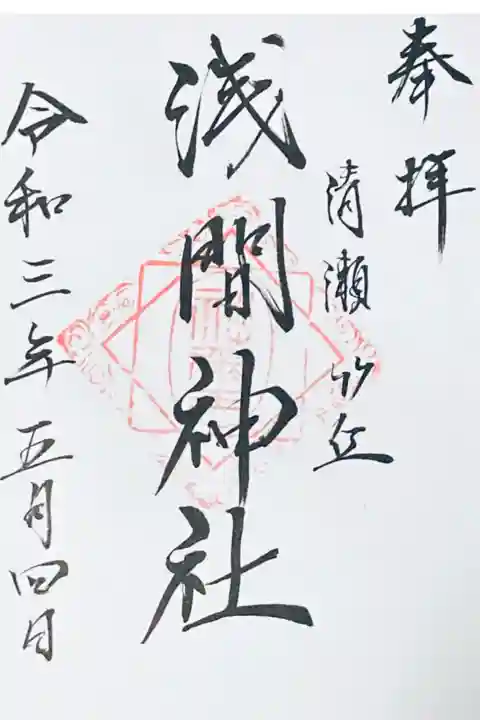 奉拝
清瀬竹丘
浅間神社
令和三年五月四日